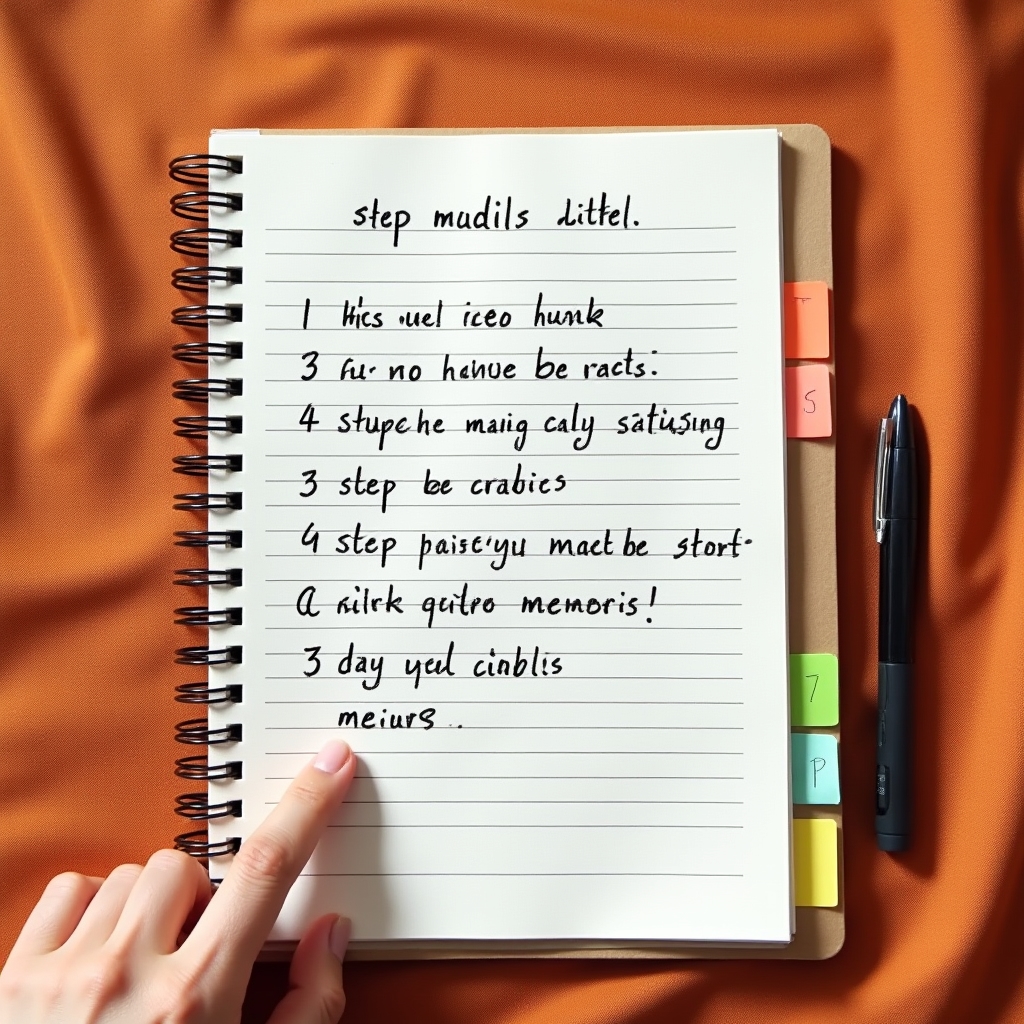 step mudils littel.
1 Hics uel iceo hunk
3 no hehue be racts:
4 stupche maiig caly satiusing
3 step be crabies
4 step paisc'yu mact be stort
a kilrk qeitpo memoris!
3 day yeel cinblis
meiurs ..
S
7
P